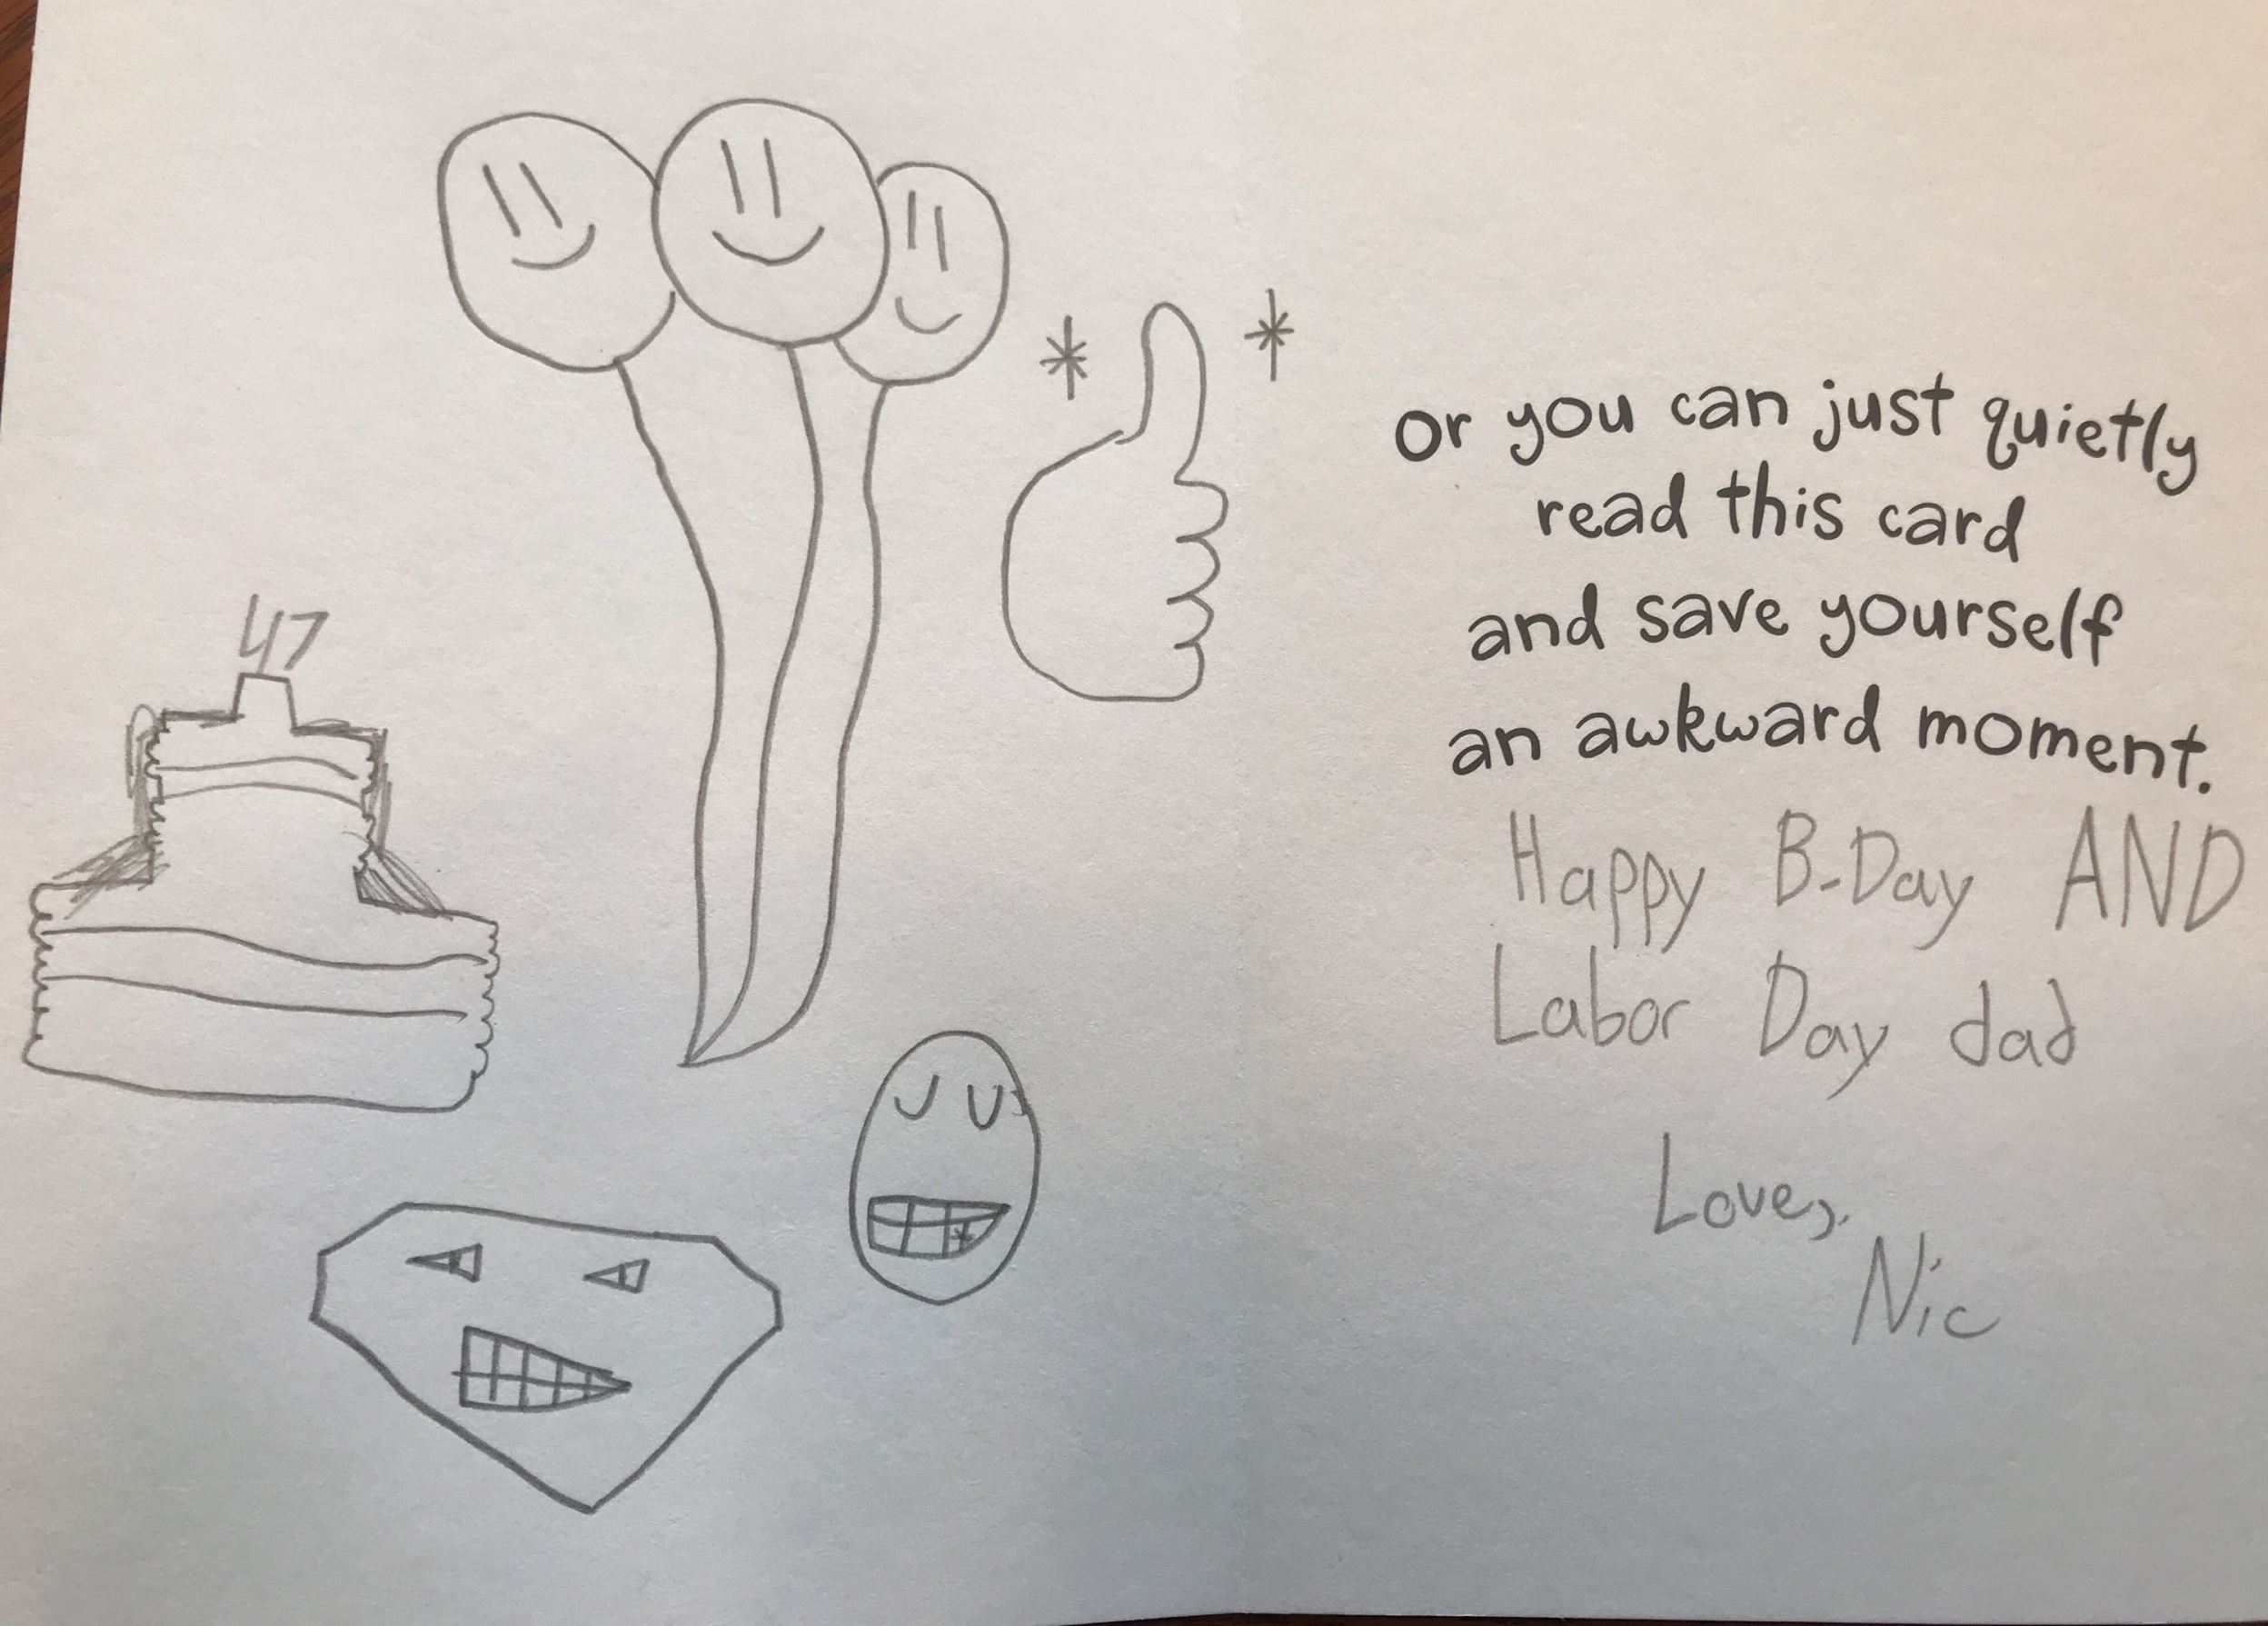 47
or you can just quietly
read this card
and save yourself
an awkward moment.
Happy B-Day AND
Labor Day dad
Love,
Nic